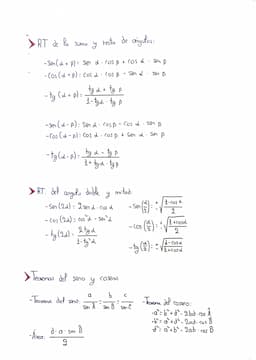 RT de la suma y resta de ángulos:
- sen (α + β) = sen α · cos β + cos α · sen β
- cos (α + β) = cos α · cos β - sen α · sen β
- tg (α + β) = (tg α + tg β) / (1 - tg α · tg β)
- sen (α - β) = sen α · cos β - cos α · sen β
- cos (α - β) = cos α · cos β + sen α · sen β
- tg (α - β) = (tg α - tg β) / (1 + tg α · tg β)
RT. del angulo doble y mitad:
- sen (2α) = 2 sen α · cos α
- cos (2α) = cos² α - sen² α
- tg (2α) = 2 tg α / (1 - tg² α)
- sen (α/2) = ± √((1 - cos α) / 2)
- cos (α/2) = ± √((1 + cos α) / 2)
- tg (α/2) = ± √((1 - cos α) / (1 + cos α))
Teorema del seno y coseno
- Teorema del seno: a / sen Â = b / sen B̂ = c / sen Ĉ
- Área:
- Teorema del coseno: